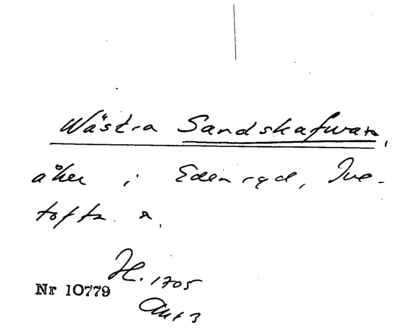 Wästra Sandskafwan,
åker i Edenryd, Ive-
tofta s.
H. 1705
Nr 10779
Akt 3